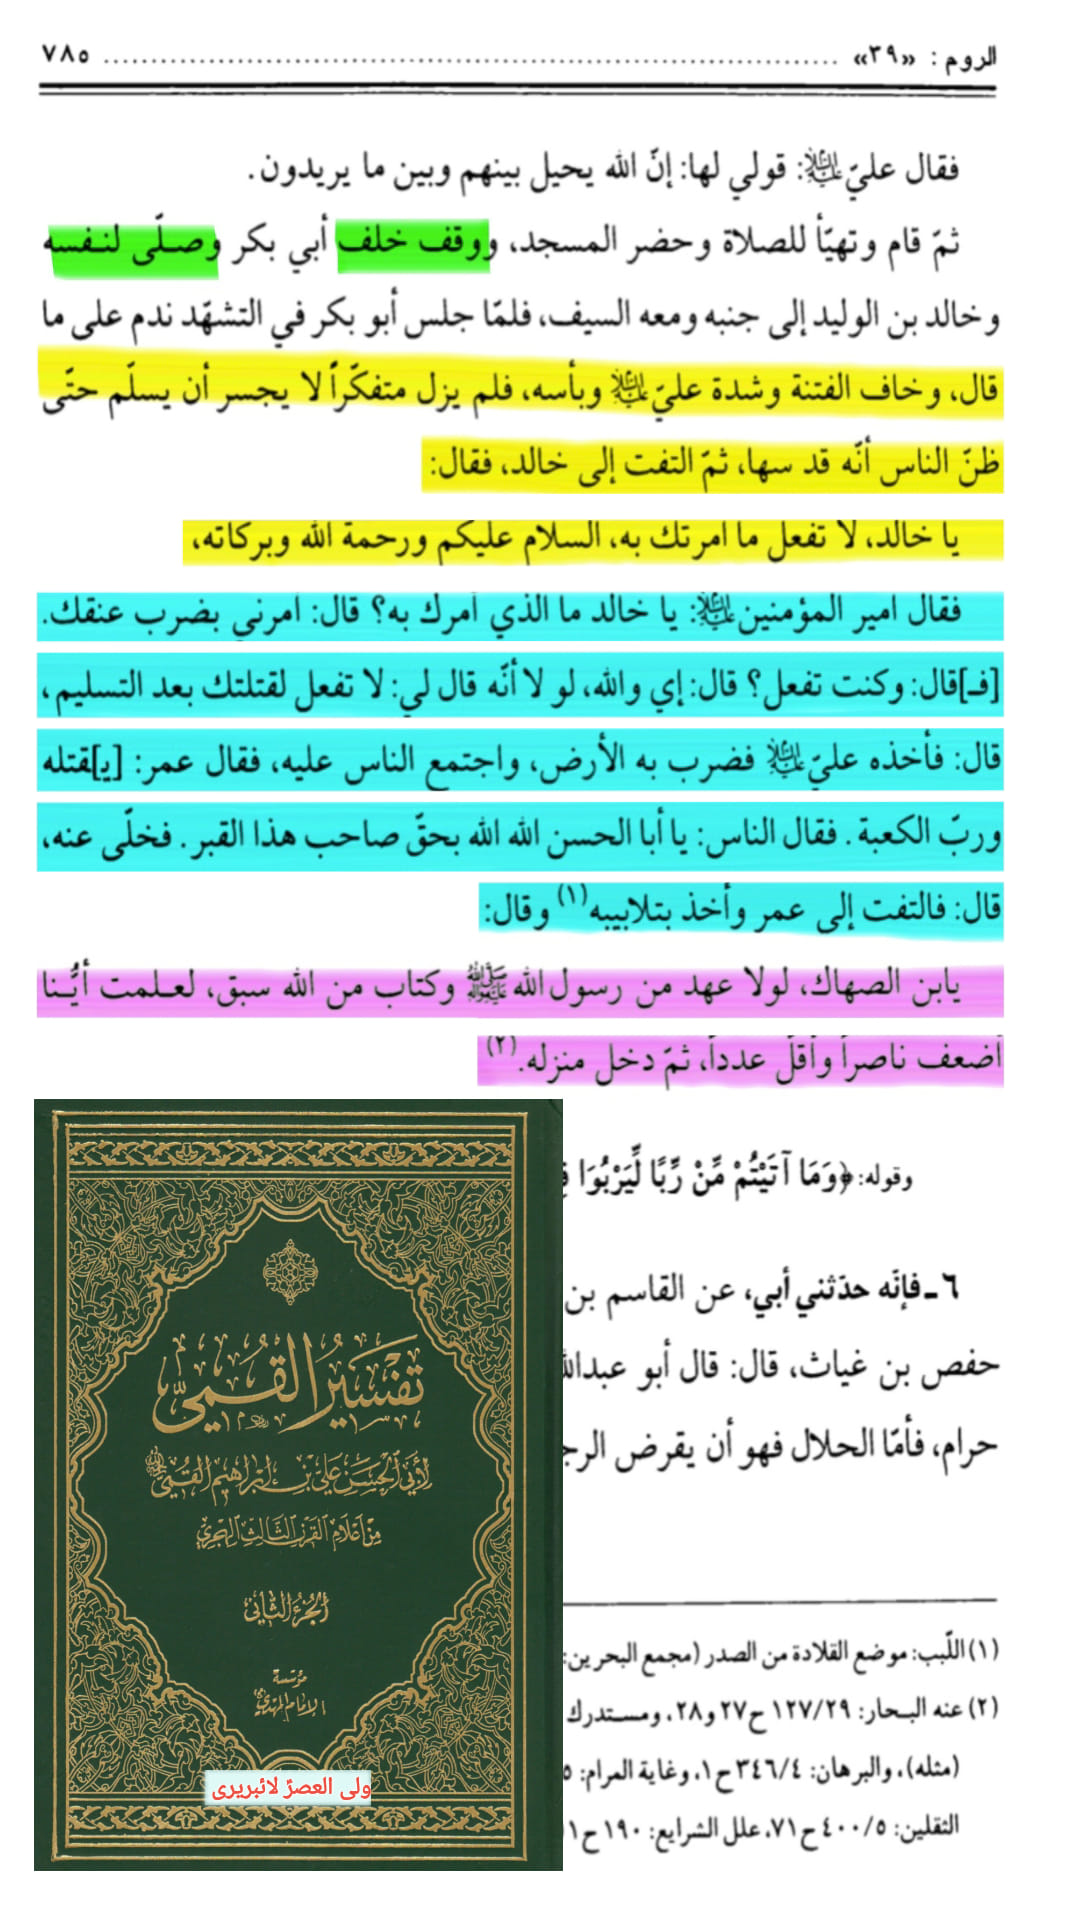 الروم : «٣٩» ........................................ ٧٨٥
فقال عليّ عليه السلام: قولي لها: إنّ الله يحيل بينهم وبين ما يريدون.
ثمّ قام وتهيّأ للصلاة وحضر المسجد، ووقف خلف أبي بكر وصلّى لنفسه
وخالد بن الوليد إلى جنبه ومعه السيف، فلمّا جلس أبو بكر في التشهّد ندم على ما
قال، وخاف الفتنة وشدة عليّ عليه السلام وبأسه، فلم يزل متفكّراً لا يجسر أن يسلّم حتّى
ظنّ الناس أنّه قد سها، ثمّ التفت إلى خالد، فقال:
يا خالد، لا تفعل ما امرتك به، السلام عليكم ورحمة الله وبركاته،
فقال امير المؤمنين عليه السلام: يا خالد ما الذي أمرك به؟ قال: امرني بضرب عنقك.
[فـ]قال: وكنت تفعل؟ قال: إي والله، لو لا أنّه قال لي: لا تفعل لقتلتك بعد التسليم،
قال: فأخذه عليّ عليه السلام فضرب به الأرض، واجتمع الناس عليه، فقال عمر: [يـ]قتله
وربّ الكعبة. فقال الناس: يا أبا الحسن الله الله بحقّ صاحب هذا القبر. فخلّى عنه،
قال: فالتفت إلى عمر وأخذ بتلابيبه (١) وقال:
يابن الصهاك، لولا عهد من رسول الله صلى الله عليه وآله وكتاب من الله سبق، لعلمت أيُّنا
أضعف ناصراً وأقلّ عدداً، ثمّ دخل منزله. (٢)
وقوله: ﴿وَمَا آتَيْتُمْ مِّنْ رِّبًا لِّيَرْبُوَا
٦ ـ فإنّه حدّثني أبي، عن القاسم بن
حفص بن غياث، قال: قال أبو عبدالله
حرام، فأمّا الحلال فهو أن يقرض الرج
(١) اللّبب: موضع القلادة من الصدر (مجمع البحرين:
(٢) عنه البحار: ١٢٧/٢٩ ح٢٧ و٢٨، ومستدرك
(مثله)، والبرهان: ٣٤٦/٤ ح١، وغاية المرام: ٥
الثقلين: ٤٠٠/٥ ح٧١، علل الشرايع: ١٩٠ ح١
تفسير القمي
لأبي الحسن علي بن إبراهيم القمي
من أعلام القرن الثالث الهجري
الجزء الثاني
مؤسسة
الإمام المهدي
ولی العصرؑ لائبریری